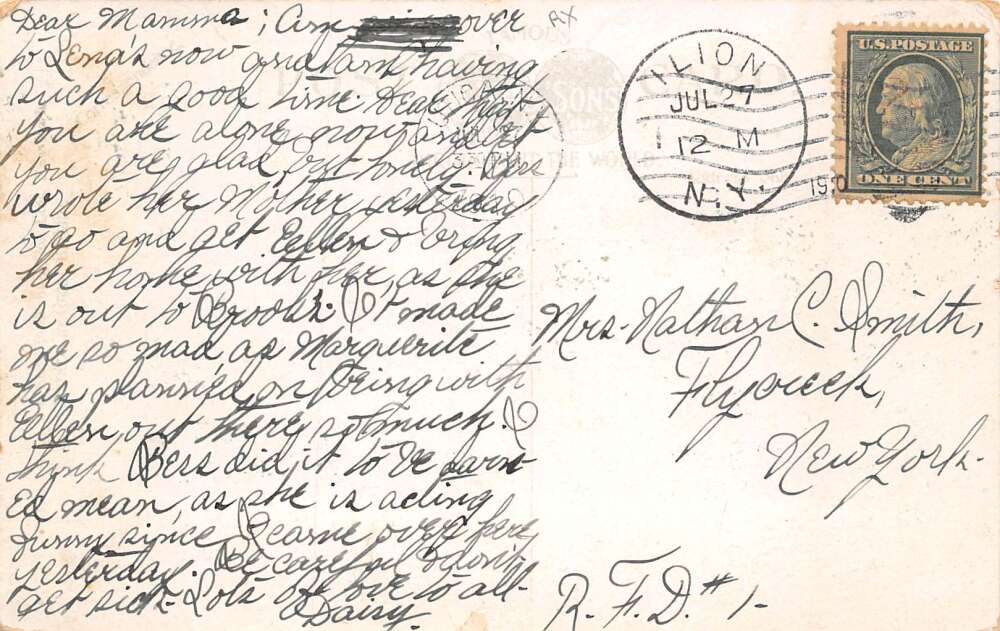 Dear Mamma; Am over
to Lena's now and am having
such a good time. Dear, 
you are alone now and 
you are glad, but lonely. Bess
wrote her Mother yesterday
to go and get Ellen & bring
her home with her, as she
is out to Brooks. It made
me so mad, as Marguerite
has planned on being with
Ellen out there so much. I
think Bess did it to be darn-
ed mean, as she is acting
funny since I came over here
yesterday. Be careful & don't
get sick. Lots of love to all-
Daisy.
RX
ILION
JUL 27
12 M
N.Y.
U.S. POSTAGE
ONE CENT
Mrs. Nathan C. Smith,
Flycreek,
New York.
R.F.D. # 1-